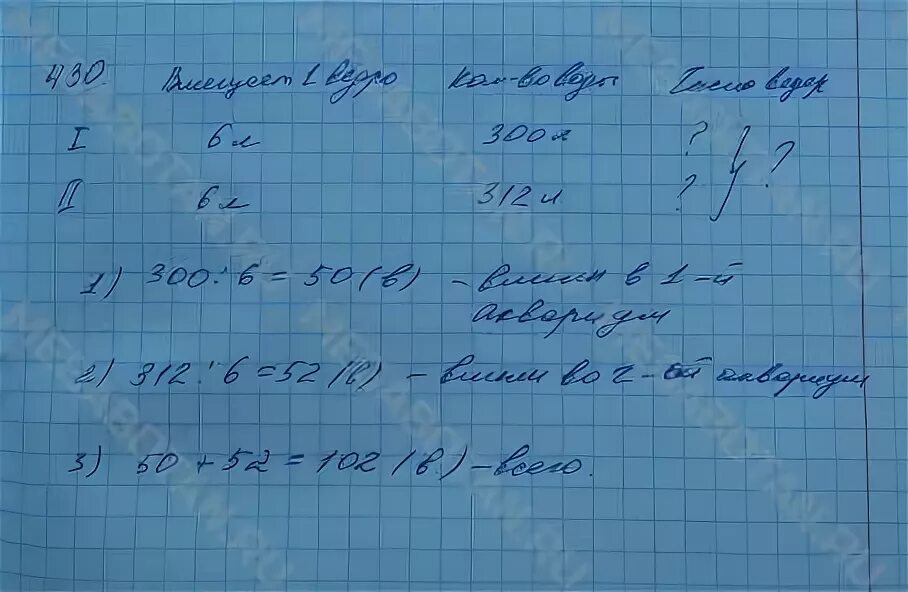 430 Вмещает 1 ведро Кол-во воды Число ведер
I 6 л 300 л ? } ?
II 6 л 312 л ?
1) 300 : 6 = 50 (в) – влили в 1-й
аквариум
2) 312 : 6 = 52 (в) – влили во 2-ой аквариум
3) 50 + 52 = 102 (в.) – всего.